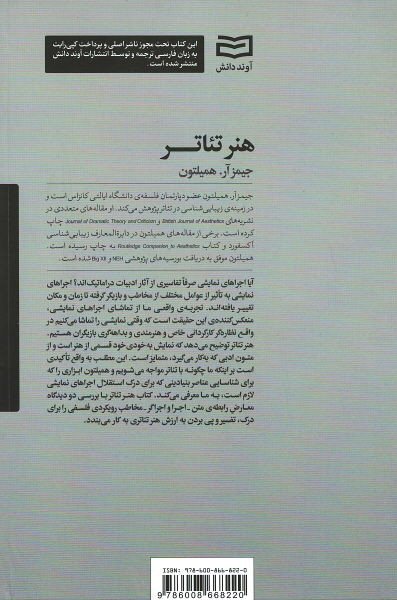 این کتاب تحت مجوز ناشر اصلی و پرداخت کپی‌رایت
به زبان فارسی ترجمه و توسط انتشارات آوند دانش
منتشر شده است.
آوند دانش
هنر تئاتر
جیمز آر. همیلتون
جیمز آر. همیلتون عضو دپارتمان فلسفه‌ی دانشگاه ایالتی کانزاس است و
در زمینه‌ی زیبایی‌شناسی در تئاتر پژوهش می‌کند. او مقاله‌های متعددی در
نشریه‌های British Journal of Aesthetics و Journal of Dramatic Theory and Criticism چاپ
کرده است. برخی از مقاله‌های همیلتون در دایرةالمعارف زیبایی‌شناسی
آکسفورد و کتاب Routledge Companion to Aesthetics به چاپ رسیده است.
همیلتون موفق به دریافت بورسیه‌های پژوهشی NEH و Big XII شده است.
آیا اجراهای نمایشی صرفاً تفاسیری از آثار ادبیات دراماتیک‌اند؟ اجراهای
نمایشی به تأثیر از عوامل مختلف از مخاطب و بازیگر گرفته تا زمان و مکان
تغییر یافته‌اند. تجربه‌ی واقعی ما از تماشای اجراهای نمایشی،
منعکس‌کننده‌ی این حقیقت است که وقتی نمایشی را تماشا می‌کنیم در
واقع نظاره‌گر کارگردانی خاص و هنرمندی و بداهه‌گری بازیگران هستیم.
هنر تئاتر توضیح می‌دهد که نمایش به‌خودی‌خود قسمی از هنر است و از
متون ادبی که به‌کار می‌گیرد، متمایز است. این مطلب به واقع تأکیدی
است بر اینکه ما چگونه با تئاتر مواجه می‌شویم و همیلتون ابزاری را که
برای شناسایی عناصر بنیادینی که برای درک استقلال اجراهای نمایشی
لازم است، به ما معرفی می‌کند. کتاب هنر تئاتر با بررسی دو دیدگاه
معارض رابطه‌ی متن ـ اجرا و اجراگر ـ مخاطب رویکردی فلسفی را برای
درک، تفسیر و پی بردن به ارزش هنر تئاتری به کار می‌بندد.
ISBN: 978-600-866-822-0
9 786008 668220